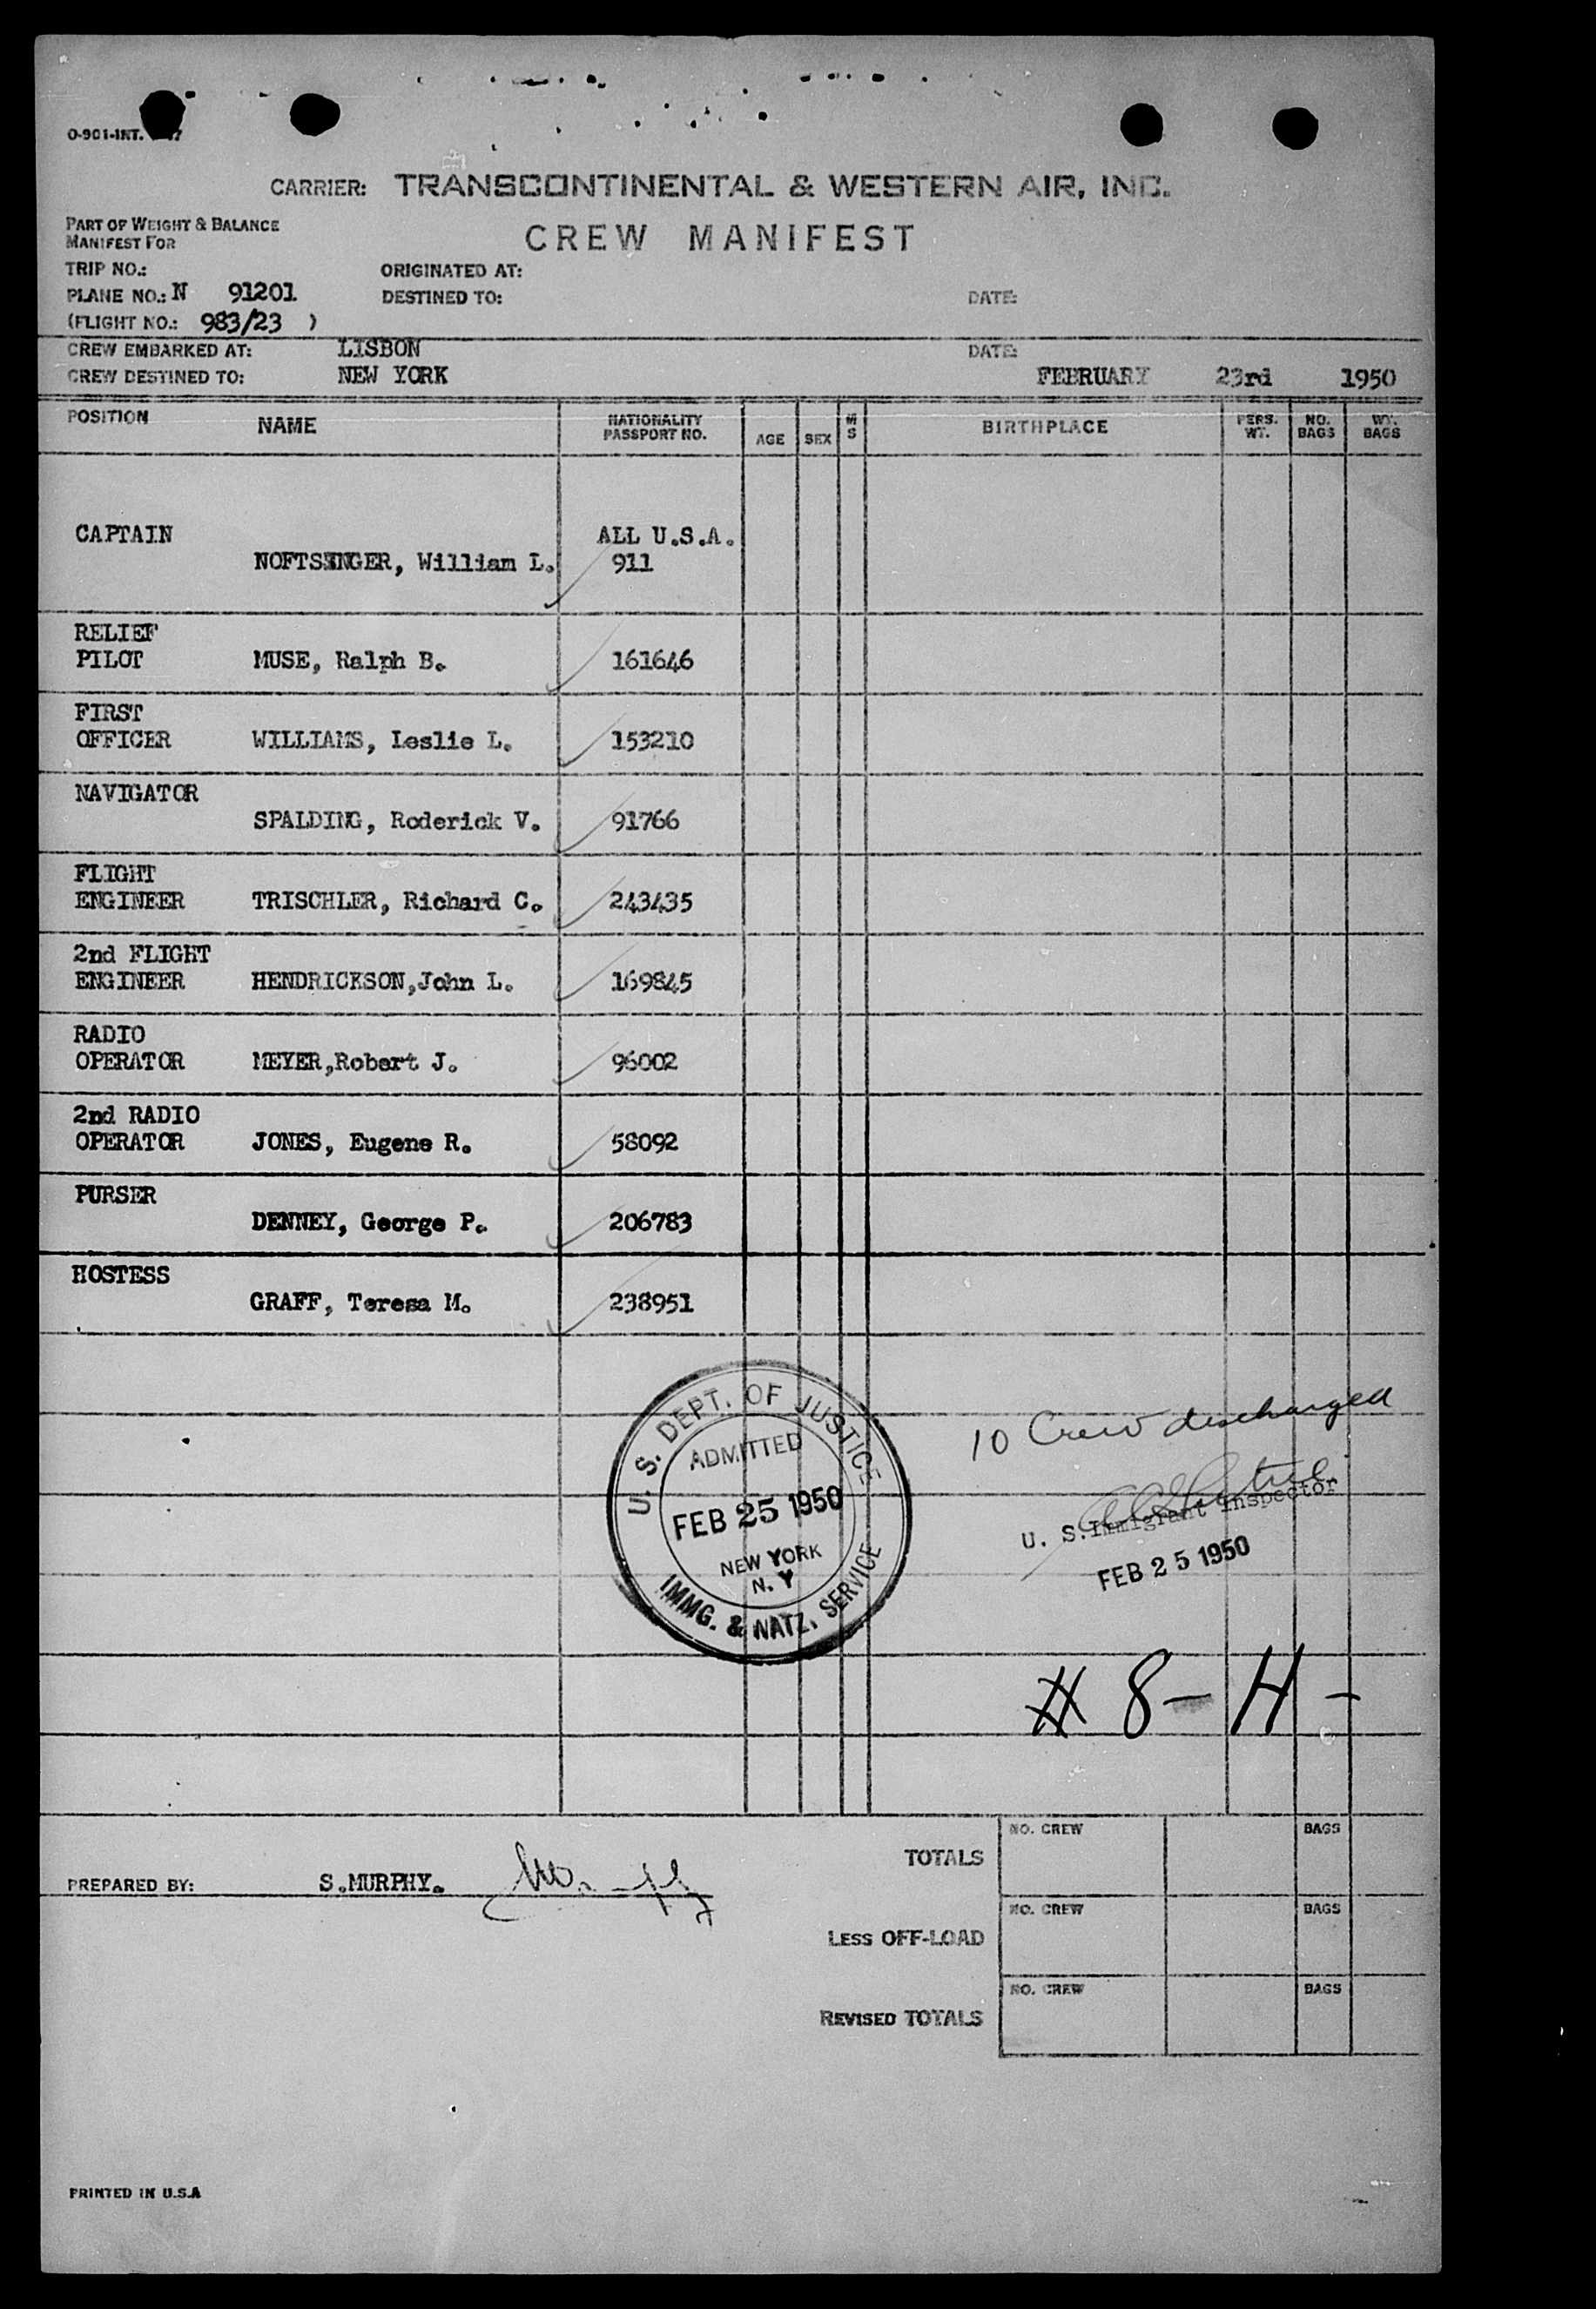 O-901-INT. 7
CARRIER: TRANSCONTINENTAL & WESTERN AIR, INC.
PART OF WEIGHT & BALANCE
MANIFEST FOR
CREW MANIFEST
TRIP NO.: ORIGINATED AT:
PLANE NO.: N 91201 DESTINED TO: DATE:
(FLIGHT NO.: 983/23 )
CREW EMBARKED AT: LISBON DATE:
CREW DESTINED TO: NEW YORK FEBRUARY 23rd 1950
POSITION NAME NATIONALITY PASSPORT NO. AGE SEX M S BIRTHPLACE PERS. WT. NO. BAGS WT. BAGS
CAPTAIN ALL U.S.A.
NOFTSINGER, William L. 911
RELIEF
PILOT MUSE, Ralph B. 161646
FIRST
OFFICER WILLIAMS, Leslie L. 153210
NAVIGATOR
SPALDING, Roderick V. 91766
FLIGHT
ENGINEER TRISCHLER, Richard C. 243435
2nd FLIGHT
ENGINEER HENDRICKSON,John L. 169845
RADIO
OPERATOR MEYER,Robert J. 96002
2nd RADIO
OPERATOR JONES, Eugene R. 58092
PURSER
DENNEY, George P. 206783
HOSTESS
GRAFF, Teresa M. 238951
U. S. DEPT. OF JUSTICE
ADMITTED
FEB 25 1950
NEW YORK
N. Y
IMMG. & NATZ. SERVICE
10 Crew discharged
U. S. Immigrant Inspector
FEB 25 1950
# 8 - H -
PREPARED BY: S.MURPHY.
TOTALS NO. CREW BAGS
LESS OFF-LOAD NO. CREW BAGS
REVISED TOTALS NO. CREW BAGS
PRINTED IN U.S.A